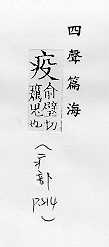 四聲篇海
疫
俞壁切
癘鬼也
(疒部
P514)